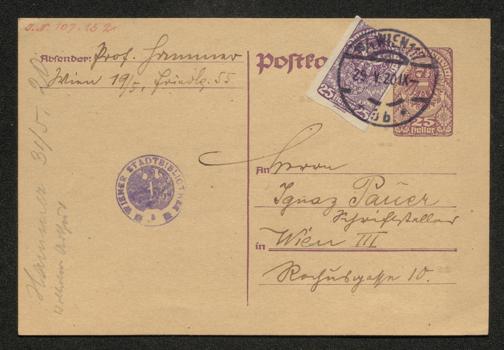 I.N. 107.152
Absender: Prof. Hammer
Wien 19/5, Friedlg. 55
Postka
WIEN
25 V 20 IX
25
25
25
Heller
Hammer 31/5. 20
WIENER STADTBIBLIOTHEK
An Herrn
Ignaz Pauer
Schriftsteller
in Wien III
Rochusgasse 10.